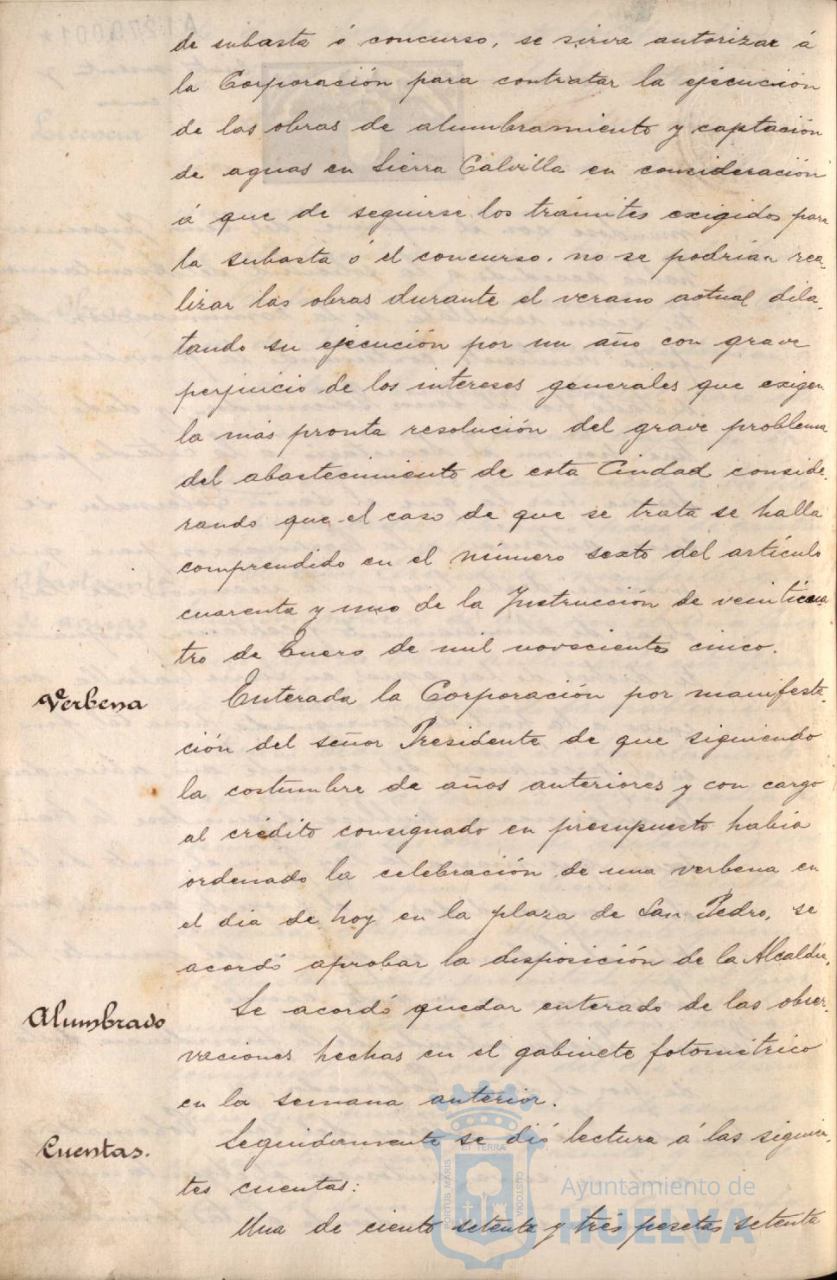 de subasta ó concurso, se sirva autorizar á
la Corporación para contratar la ejecución
de las obras de alumbramiento y captación
de aguas en Sierra Calvilla en consideración
á que de seguirse los trámites exigidos para
la subasta ó el concurso. no se podrian rea-
lizar las obras durante el verano actual dila-
tando su ejecución por un año con grave
perjuicio de los intereses generales que exigen
la más pronta resolución del grave problema
del abastecimiento de esta Ciudad conside-
rando que el caso de que se trata se halla
comprendido en el número sexto del artículo
cuarenta y uno de la Instrucción de veinticua
tro de Enero de mil novecientos cinco.
Verbena
Enterada la Corporación por manifesta-
ción del señor Presidente de que siguiendo
la costumbre de años anteriores y con cargo
al crédito consignado en presupuesto habia
ordenado la celebración de una verbena en
el dia de hoy en la plaza de San Pedro, se
acordó aprobar la disposición de la Alcaldia.
Alumbrado
Se acordó quedar enterado de las obser-
vaciones hechas en el gabinete fotométrico
en la semana anterior.
Cuentas.
Seguidamente se dió lectura á las siguien-
tes cuentas:
Una de ciento setenta y tres pesetas setenta
PORTUS MARIS
ET TERRA
CUSTODIA
Ayuntamiento de
HUELVA